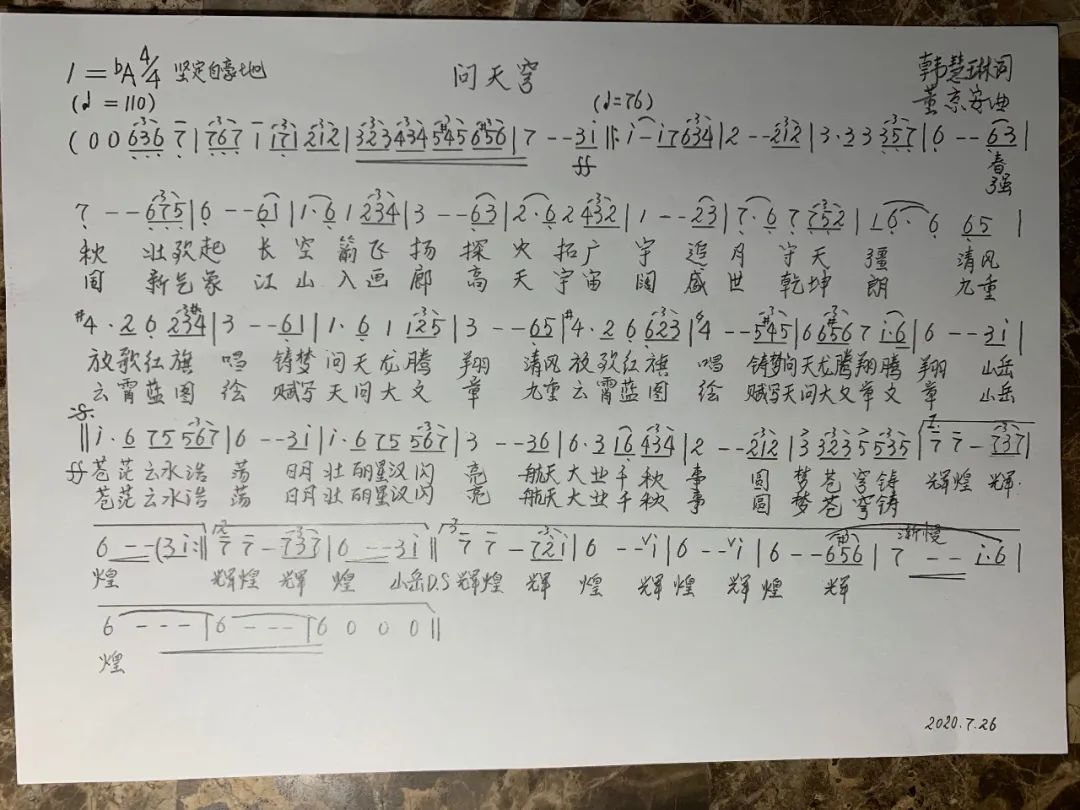 1=♭A 4/4 坚定自豪地 问天穹 韩慧琳词
(♩=110) (♩=76) 董京安曲
(0 0 636 7 | 767 1 171 212 | 323 434 5#45 656 | 7 - - 3i ‖: i - i7 634 | 2 - - 212 | 3· 3 3 357 | 6 - - 63 |
ff 春
强
7 - - 675 | 6 - - 61 | 1· 6 1 234 | 3 - - 63 | 2· 6 2 432 | 1 - - 23 | 7· 6 7 752 | 16· 6 65 |
秋 壮歌起 长空箭飞扬 探火拓广宇 追月守天疆 清风
国 新气象 江山入画廊 高天宇宙阔 盛世乾坤朗 九重
#4· 2 6 234 | 3 - - 61 | 1· 6 1 125 | 3 - - 65 | #4· 2 6 623 | #4 - - 5#45 | 6 6#56 7 i·6 | 6 - - 3i |
放歌红旗唱 铸梦问天龙腾翔 清风放歌红旗唱 铸梦问天龙腾翔腾翔 山岳
云霄蓝图绘 赋写天问大文章 九重云霄蓝图绘 赋写天问大文章文章 山岳
‖ i· 6 75 567 | 6 - - 3i | i· 6 75 567 | 3 - - 36 | 6· 3 16 434 | 2 - - 212 | 3 323 5 535 | 1. 7 7 - 737 |
ff 苍茫云水浩荡 日月壮丽星汉闪亮 航天大业千秋事 圆梦苍穹铸 辉煌 辉
苍茫云水浩荡 日月壮丽星汉闪亮 航天大业千秋事 圆梦苍穹铸
6 - - (3i :‖ 2. 7 7 - 737 | 6 - - 3i ‖ 3. 7 7 - 72i | 6 - - ∨i | 6 - - ∨i | 6 - - 656 | 渐慢 7 - - i·6 |
煌 辉煌 辉 煌 山岳D.S 辉煌 辉 煌 辉煌 辉煌 辉
6 - - - | 6 - - - | 6 0 0 0 ‖
煌
2020.7.26